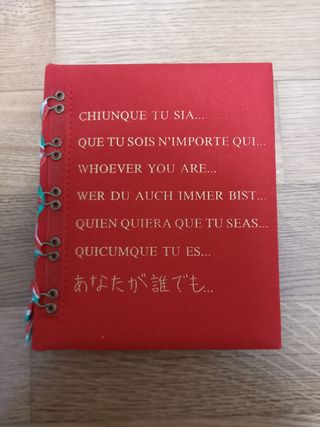 CHIUNQUE TU SIA...
QUE TU SOIS N'IMPORTE QUI...
WHOEVER YOU ARE...
WER DU AUCH IMMER BIST...
QUIEN QUIERA QUE TU SEAS...
QUICUMQUE TU ES...
あなたが誰でも...